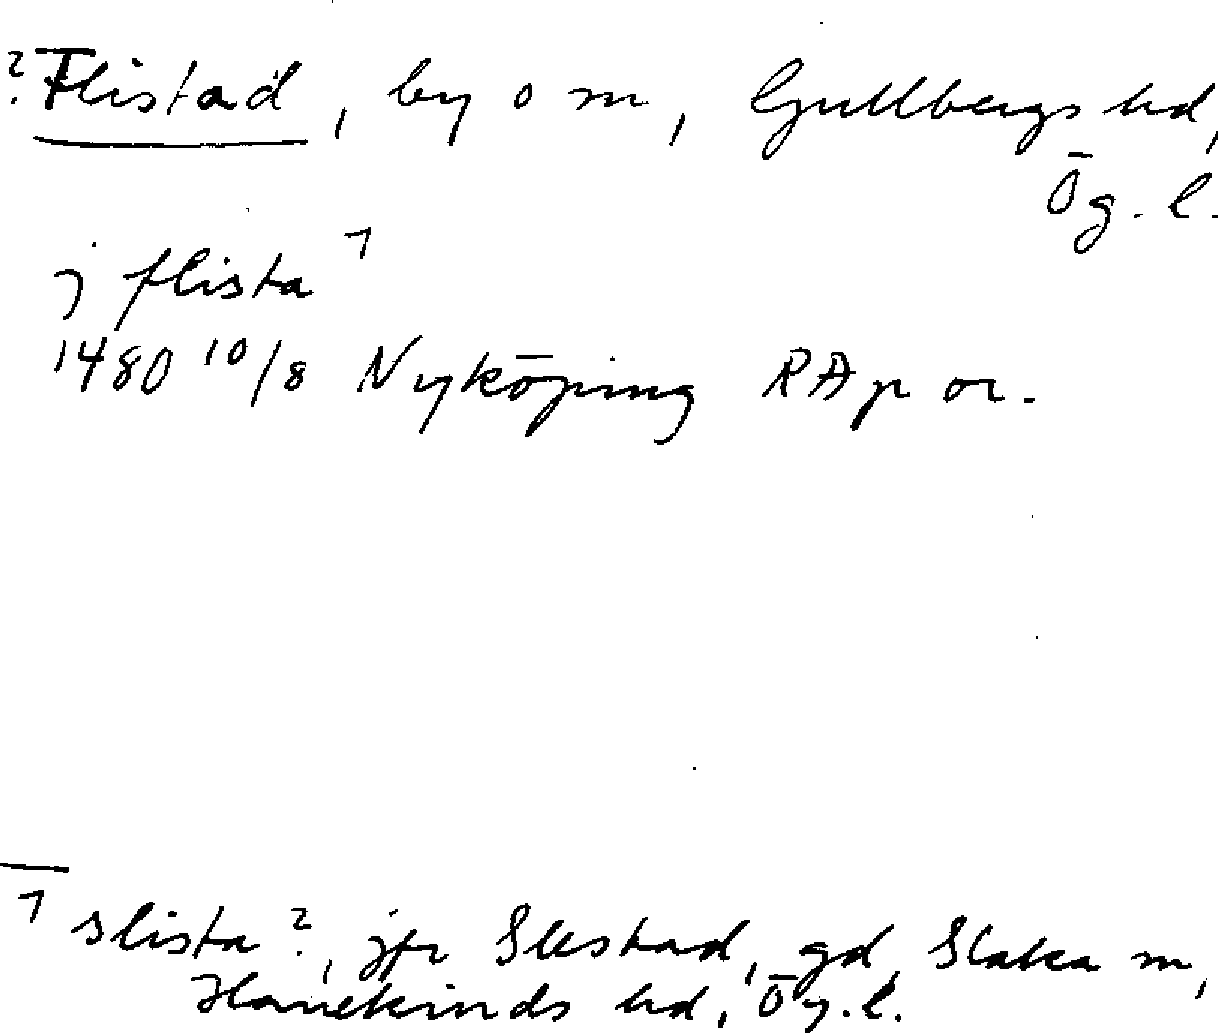 ? Flistad, by o sn, Gullbergs hd,
Ög. l.
j flista 1
1480 10/8 Nyköping RAp or.
1 slista?, jfr Slestad, gd, Slaka sn,
Hanekinds hd, Ög. l.